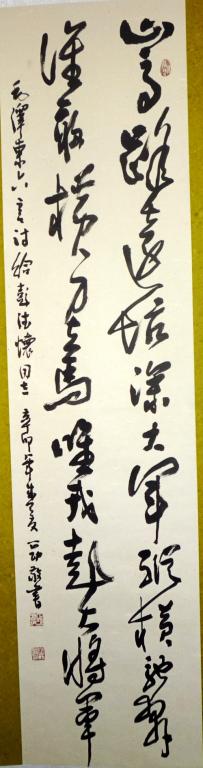 山高路遠坑深大軍縱橫馳奔
誰敢橫刀立馬唯我彭大將軍
毛澤東六言詩給彭德懷同志 年 書